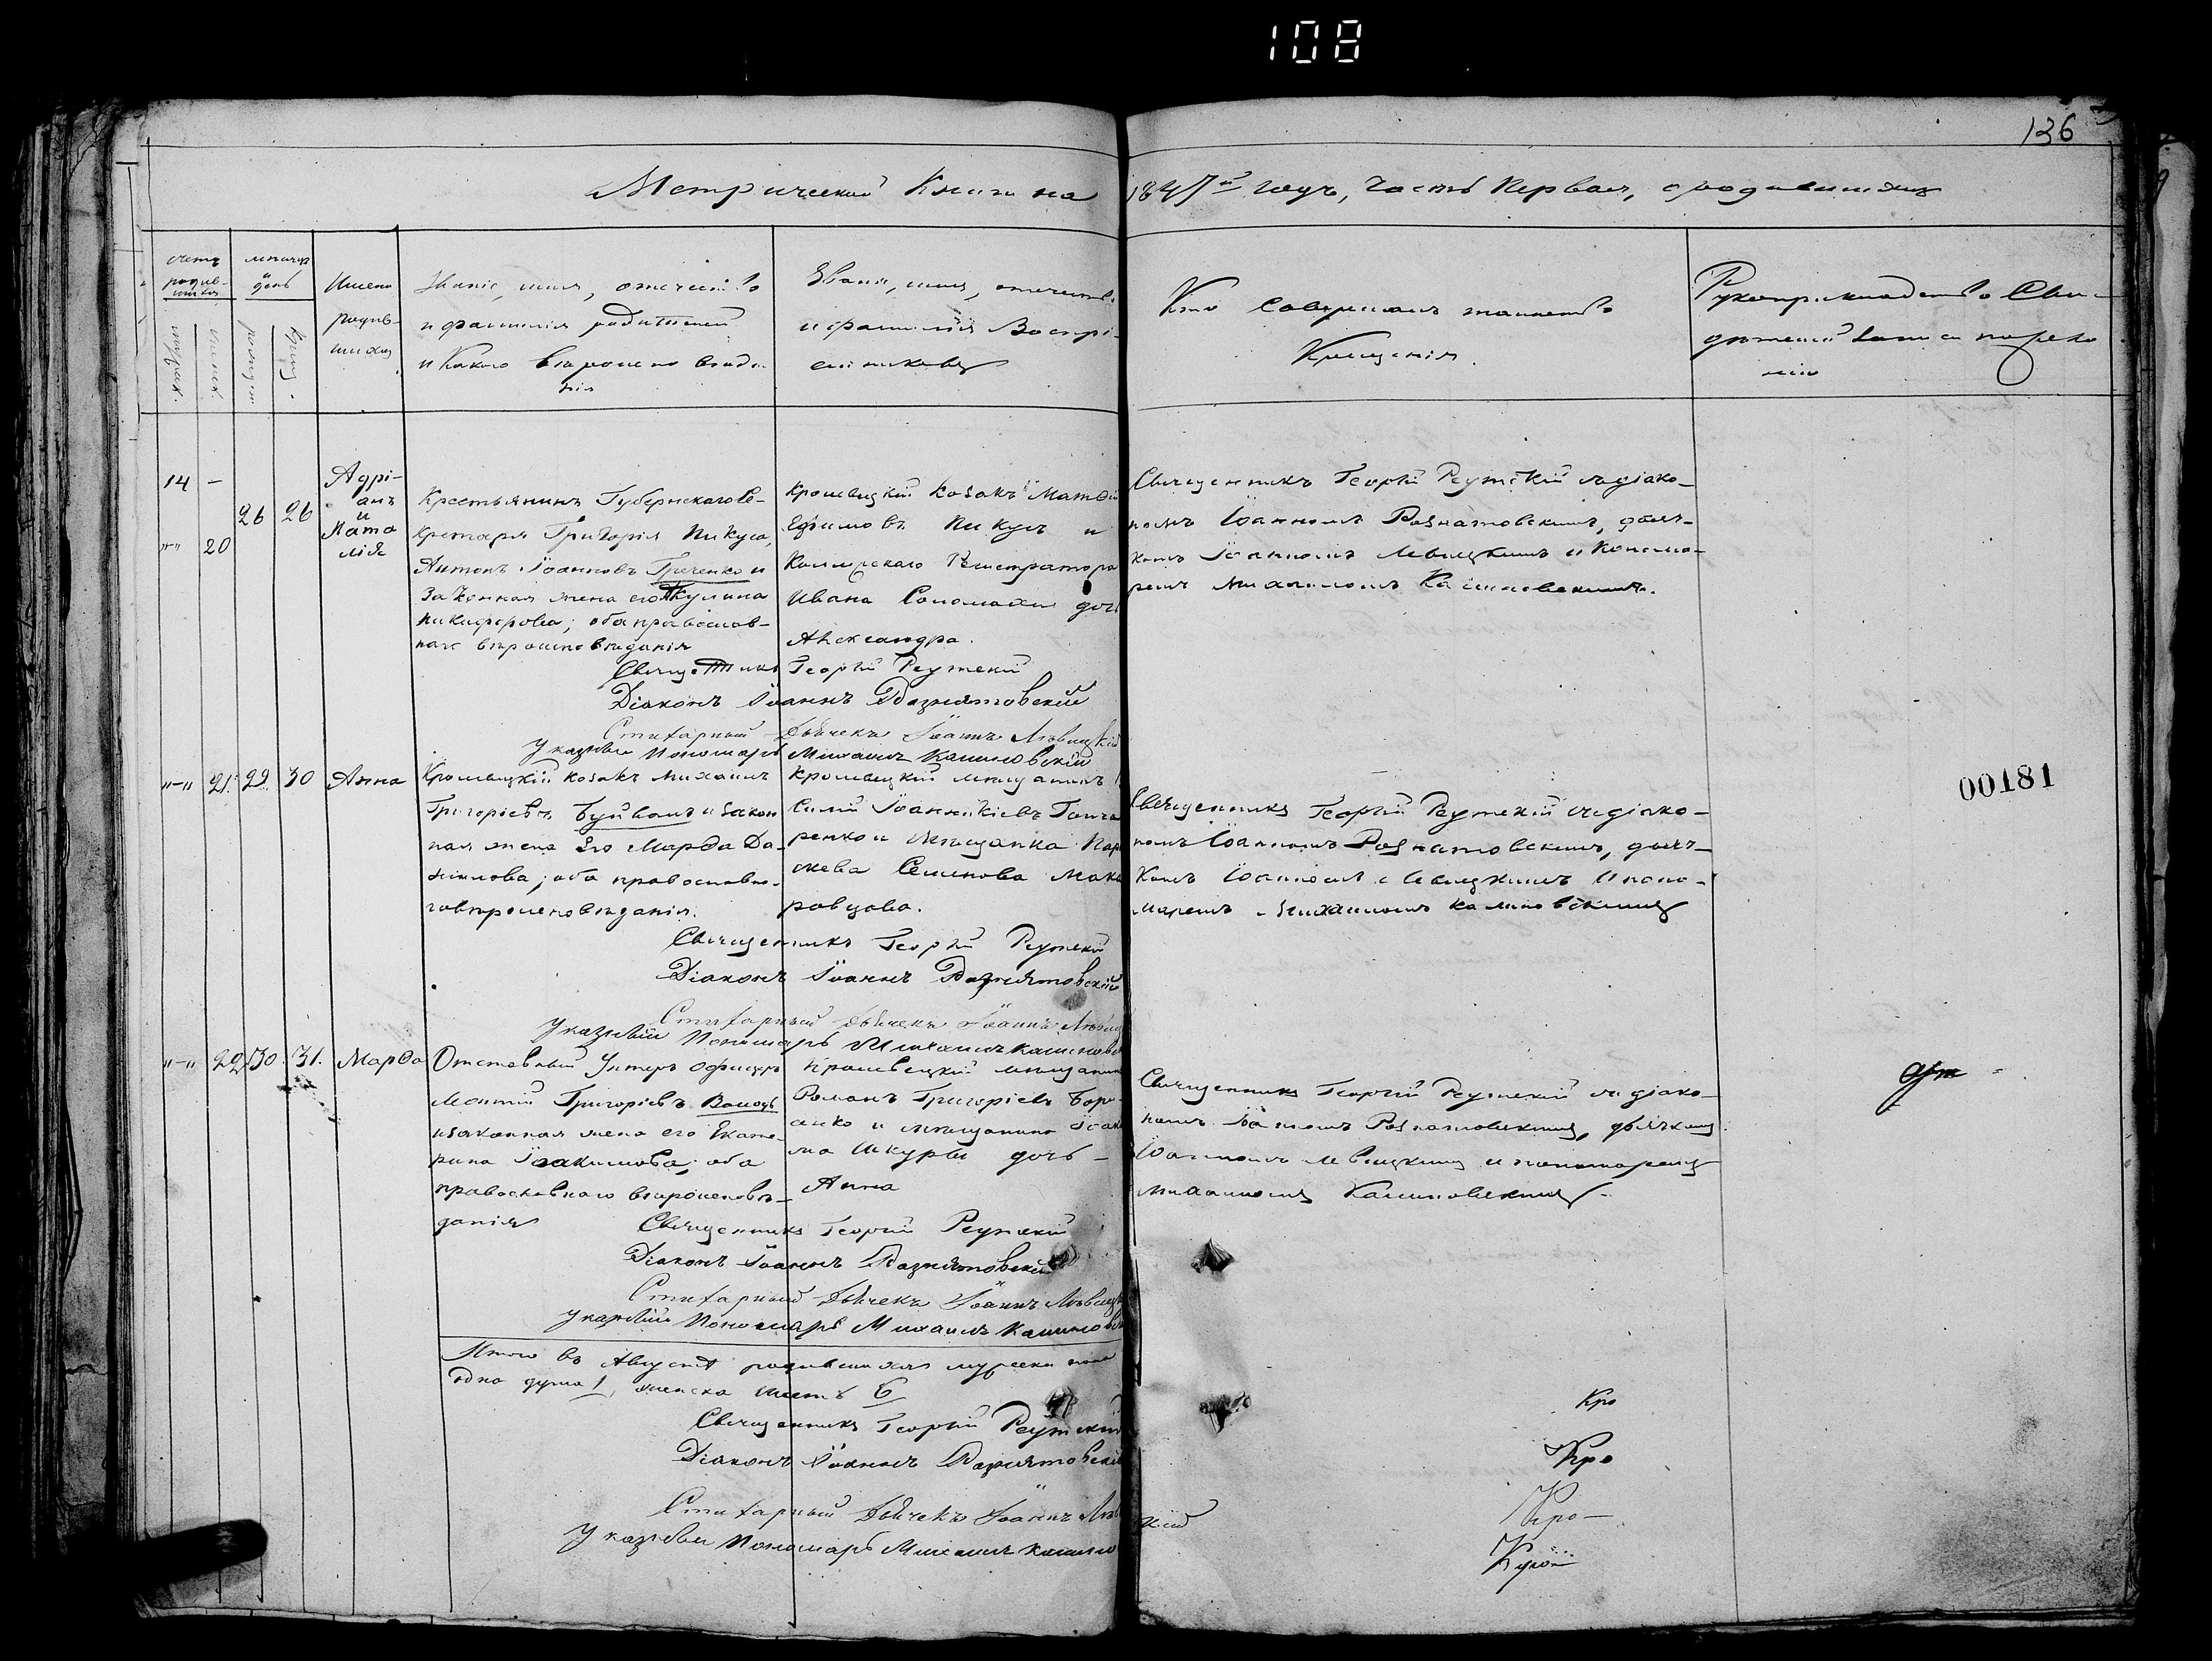 108
136
Метрической Книги на 1847й годъ, Часть Первая, о родившихся
счетъ родив-
шихся
мужеск.
женск.
месяцъ
и
день
рожден.
крещ.
Имена
родив-
шихся
Званіе, имя, отечество
и фамилія родителей
и Какого вѣроисповѣда-
нія
Званіе, имя, отечество
и фамилія Воспрі-
емниковъ
Кто Совершалъ таинство
Крещенія.
Рукоприкладство Сви-
дѣтелей записи по жела
нію
14 -
"-" 20
26 26
Адрі-
анъ
и
Ната
лія
Крестьянинъ Губернскаго Се-
кретаря Григорія Пикуса,
Антонъ Іоанновъ Гриченко и
Законная жена его Акулина
Никифорова; оба православ-
наго вѣроисповѣданія
Кролевецкій козакъ Матѳій
Ефимовъ Пикусъ и
Коллежскаго Регистратора
Ивана Соломахи дочь
Александра.
Священникъ Георгій Реутскій съ діако-
номъ Іоанномъ Рознатовскимъ, дьяч-
комъ Іоанномъ Левицкимъ и Понома-
ремъ Михаиломъ Калиновскимъ.
Священникъ Георгій Реутскій
Діаконъ Іоаннъ Розиятовскій
Стихарный Дьячекъ Іоаннъ Лѣвицкій
Указный Пономарь Михаилъ Калиновскій
"-" 21. 29. 30 Анна
Кролевецкій козакъ Михаилъ
Григорієвъ Буйволъ и закон
ная жена его Марѳа Да-
ниилова; оба православна-
го вѣроисповѣданія.
Кролевецкій мѣщанинъ
Силій Іоанникіевъ Гонча
ренко и мѣщанка Пара
скева Семенова Мака
ровцова.
Священникъ Георгій Реутскій съ діако-
номъ Іоанномъ Рознатовскимъ, дьяч-
комъ Іоанномъ Левицкимъ и поно-
маремъ Михаиломъ Калиновскимъ
00181
Священникъ Георгій Реутскій
Діаконъ Іоаннъ Розиятовскій
Стихарный Дьячекъ Іоаннъ Лѣвиц
Указный Пономарь Михаилъ Калиновс
"-" 22 30. 31. Марѳа
Отставный Унтеръ Офицеръ
Леонтій Григорієвъ Волощъ
и законная жена его Екате-
рина Іоакимова; оба
православнаго вѣроисповѣ-
данія
Кролевецкій мѣщанинъ
Романъ Григорієвъ Бор-
анко и мѣщанина Іоаки
ма Шкуры дочь -
Анна
Священникъ Георгій Реутскій съ діако-
номъ Іоанномъ Рознатовскимъ, дьячкомъ
Іоанномъ Левицкимъ и пономаремъ
Михаиломъ Калиновскимъ.
Священникъ Георгій Реутскій
Діаконъ Іоаннъ Розиятовскій
Стихарный Дьячекъ Іоаннъ Лѣвицк
Указный Пономарь Михаилъ Калиновс
Итого въ Августѣ родившихся мужеска пола
одна душа 1, женска шесть 6
Священникъ Георгій Реутскій
Діаконъ Іоаннъ Розиятовскій
Стихарный Дьячекъ Іоаннъ Лѣв цкій
Указный Пономарь Михаилъ Калино
Кро
Кро
Кро-